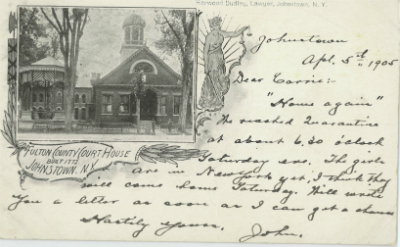 Harwood Dudley, Lawyer, Johnstown, N. Y.
Johnstown
Apl. 5th 1905
Dear Carrie:-
"Home again"
We reached Quarantine
at about 6.30 o'clock
Saturday eve. The girls
are in New York yet, I think they
will come home Saturday. Will write
You a letter as soon as I can get a chance
Hastily yours,
John.
FULTON COUNTY COURT HOUSE
BUILT 1772
JOHNSTOWN, N.Y.